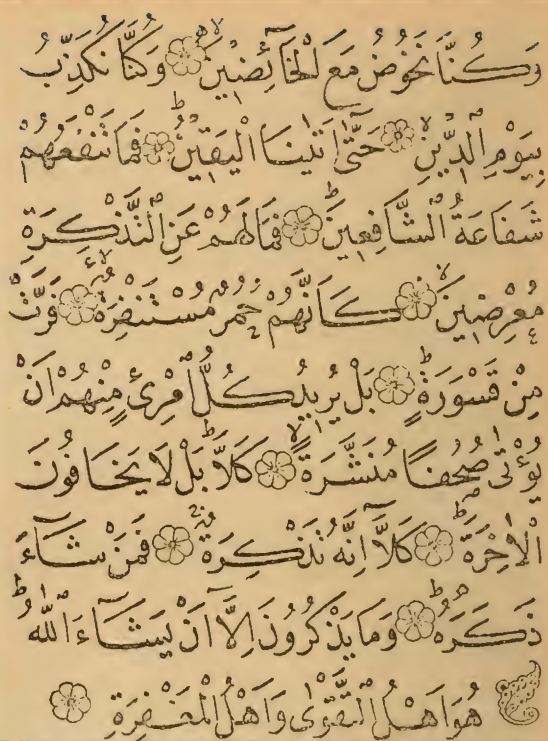 وَكُنَّا نَخُوضُ مَعَ الْخَائِضِينَ ۙ وَكُنَّا نُكَذِّبُ
بِيَوْمِ الدِّينِ ۙ حَتَّى اَتٰينَا الْيَقِينُ ۜ فَمَا تَنْفَعُهُمْ
شَفَاعَةُ الشَّافِعِينَ ۜ فَمَا لَهُمْ عَنِ التَّذْكِرَةِ
مُعْرِضِينَ ۙ كَاَنَّهُمْ حُمُرٌ مُسْتَنْفِرَةٌ ۙ فَرَّتْ
مِنْ قَسْوَرَةٍ ۜ بَلْ يُرِيدُ كُلُّ امْرِئٍ مِنْهُمْ اَنْ
يُؤْتٰى صُحُفًا مُنَشَّرَةً ۙ كَلَّا بَلْ لَا يَخَافُونَ
الْاٰخِرَةَ ۜ كَلَّا اِنَّهُ تَذْكِرَةٌ ۚ فَمَنْ شَاءَ
ذَكَرَهُ ۜ وَمَا يَذْكُرُونَ اِلَّا اَنْ يَشَاءَ اللّٰهُ
هُوَ اَهْلُ التَّقْوٰى وَاَهْلُ الْمَغْفِرَةِ